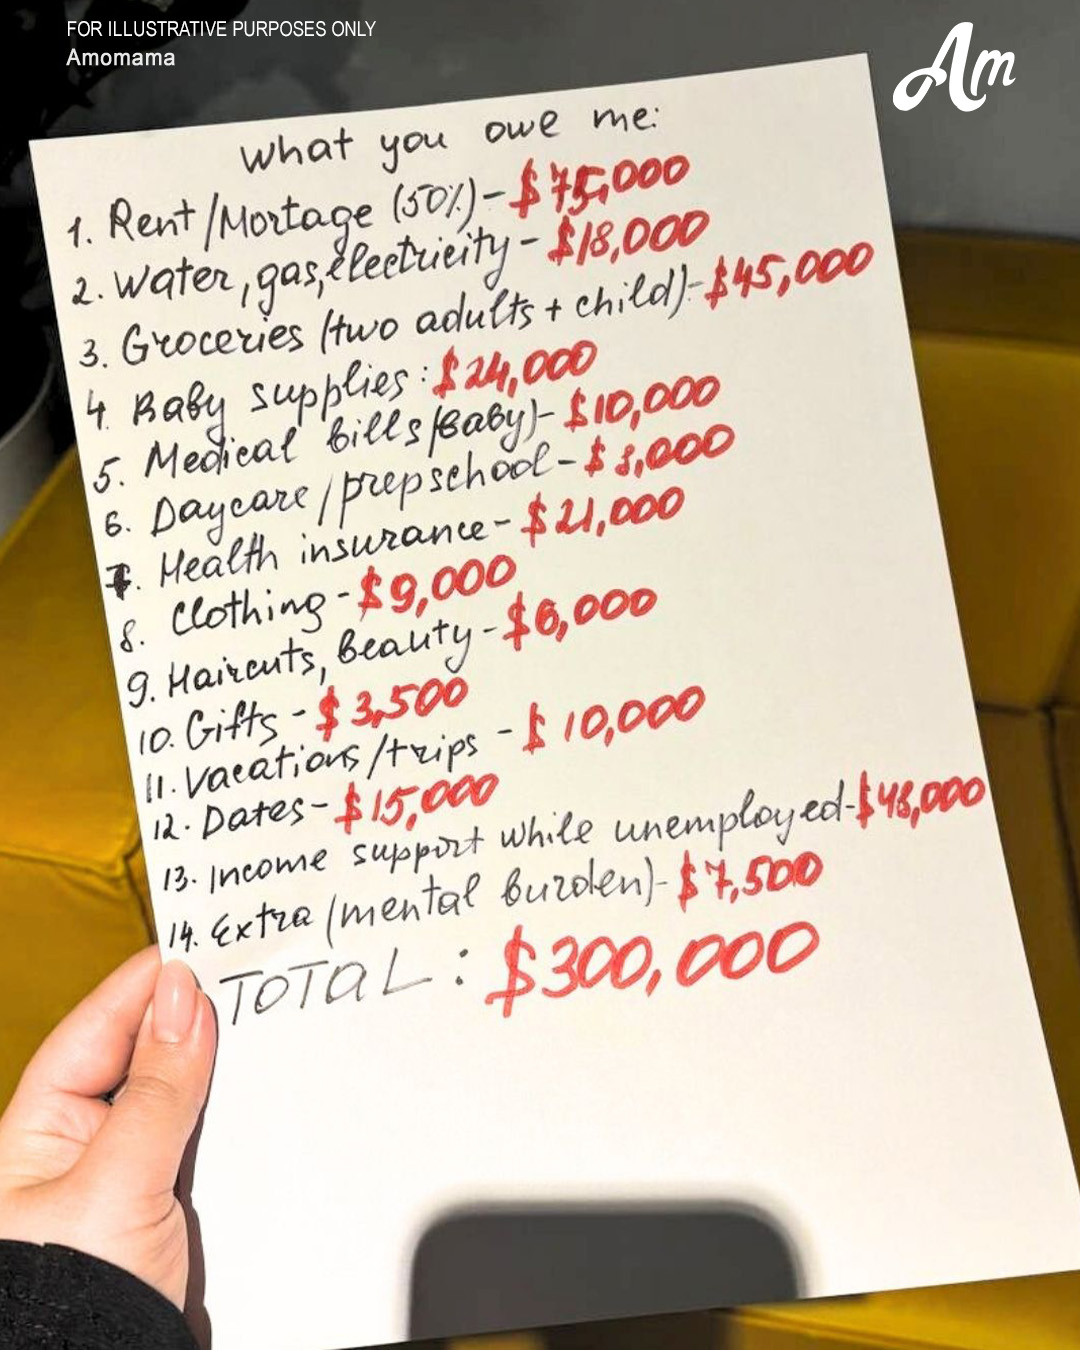 FOR ILLUSTRATIVE PURPOSES ONLY
Amomama
Am
What you owe me:
1. Rent/Mortage (50%) - $75,000
2. Water, gas, electricity - $18,000
3. Groceries (two adults + child) - $45,000
4. Baby supplies: $24,000
5. Medical bills (Baby) - $10,000
6. Daycare/prepschool - $8,000
7. Health insurance - $21,000
8. Clothing - $9,000
9. Haircuts, Beauty - $6,000
10. Gifts - $3,500
11. Vacations/trips - $10,000
12. Dates - $15,000
13. Income support while unemployed - $48,000
14. Extra (mental burden) - $7,500
TOTAL: $300,000